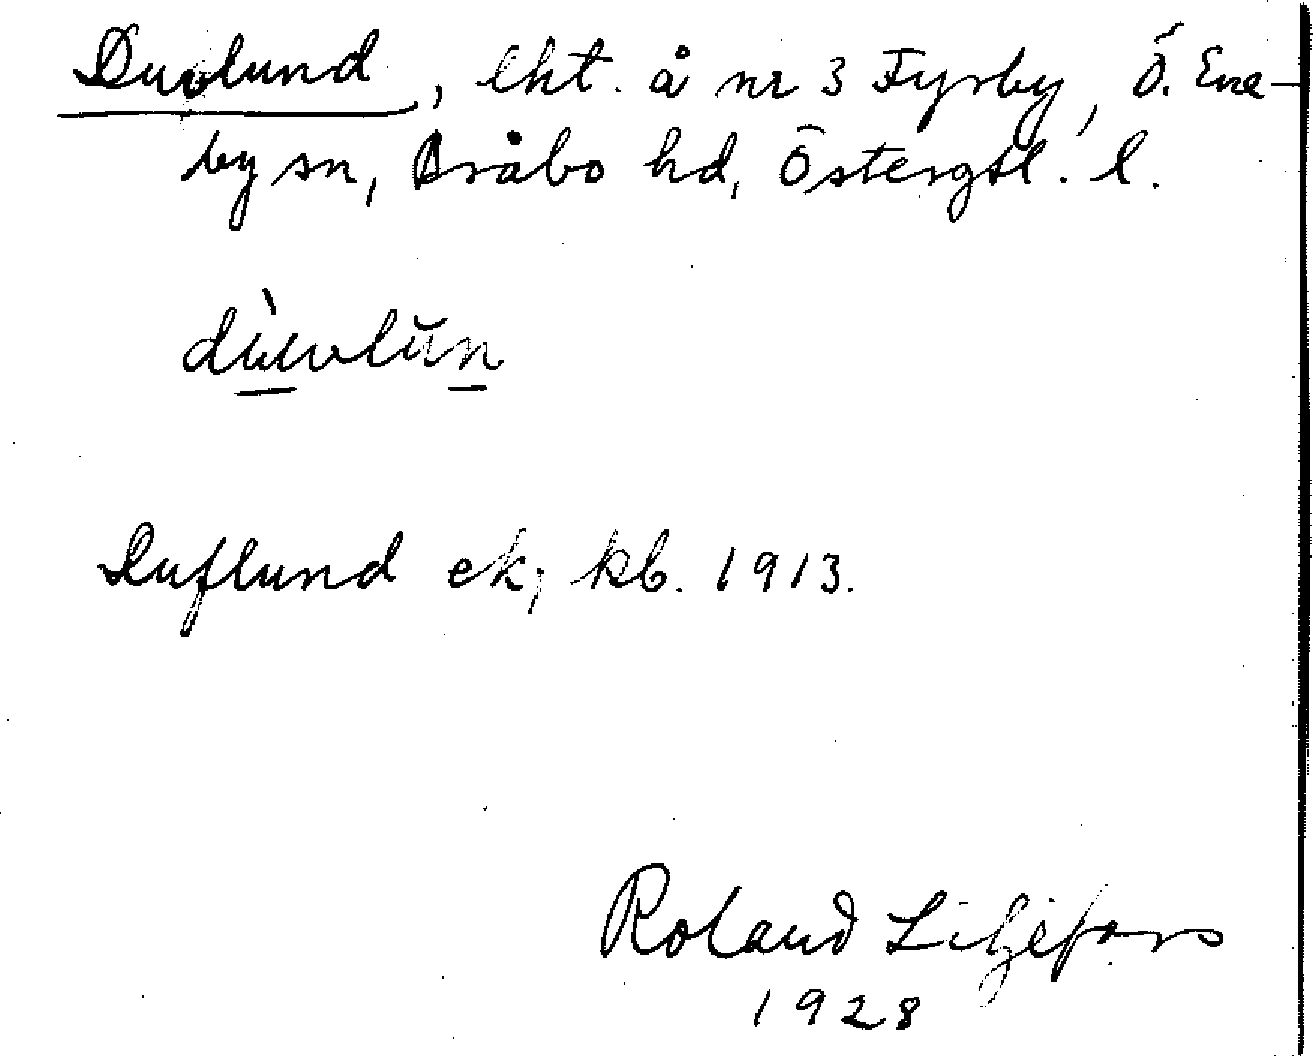 Duvlund, lht. å nr 3 Fyrby, Ö. Ene-
by sn, Bråbo hd, Östergtl. l.
dùuvlŭn
Duflund ek; kb. 1913.
Roland Liljefors
1928